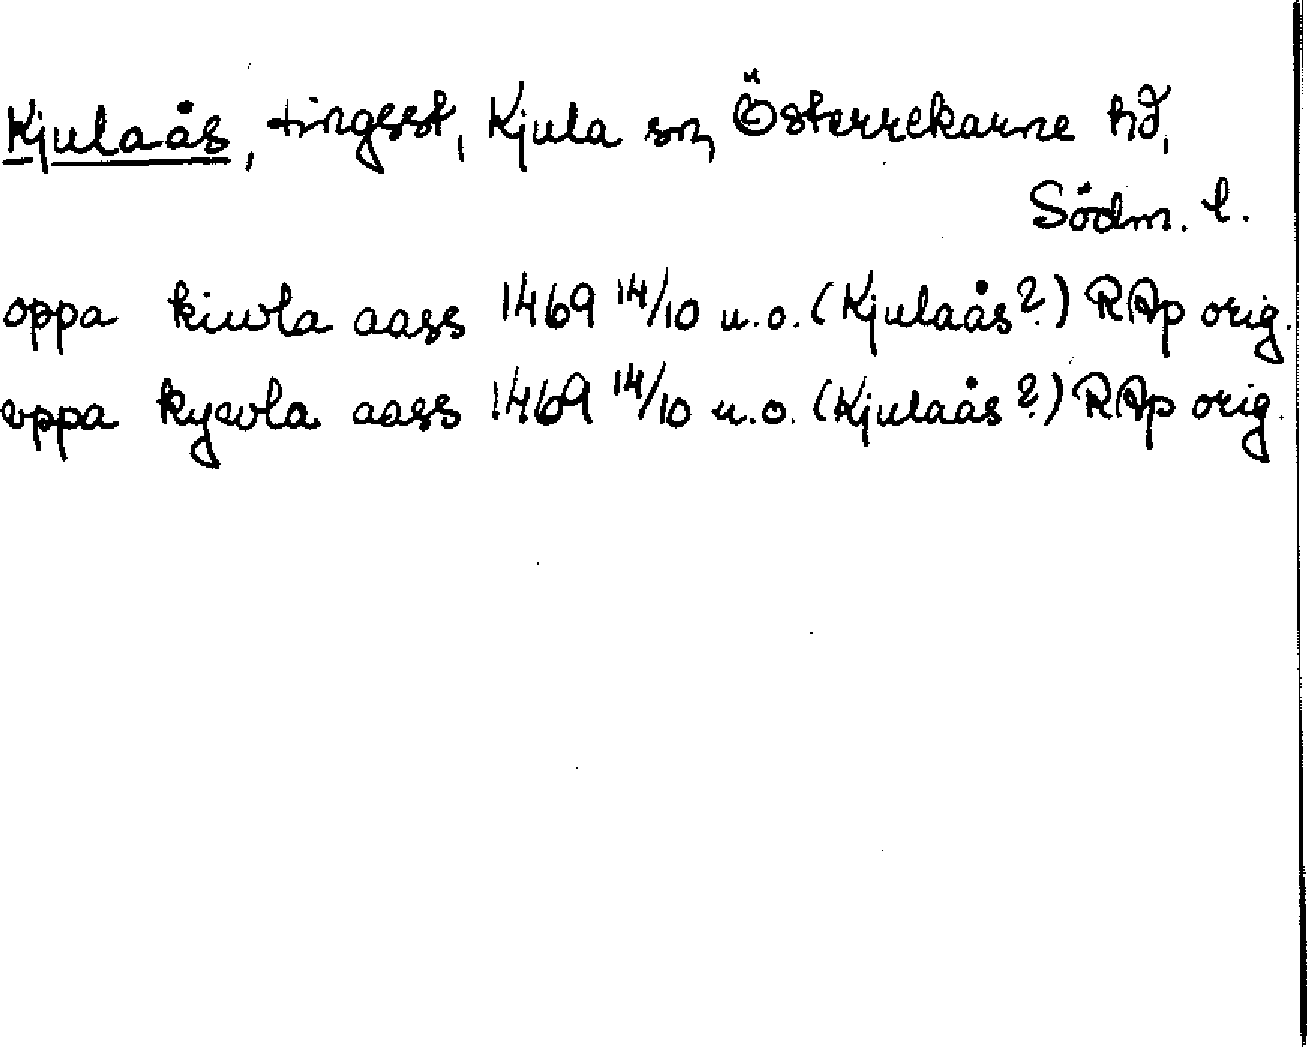 Kjulaås, tingsst, Kjula sn, Österrekarne hd,
Södm. l.
oppa kiwla aass 1469 14/10 u.o. (Kjulaås?) RAp orig.
oppa kywla aass 1469 14/10 u.o. (Kjulaås?) RAp orig.